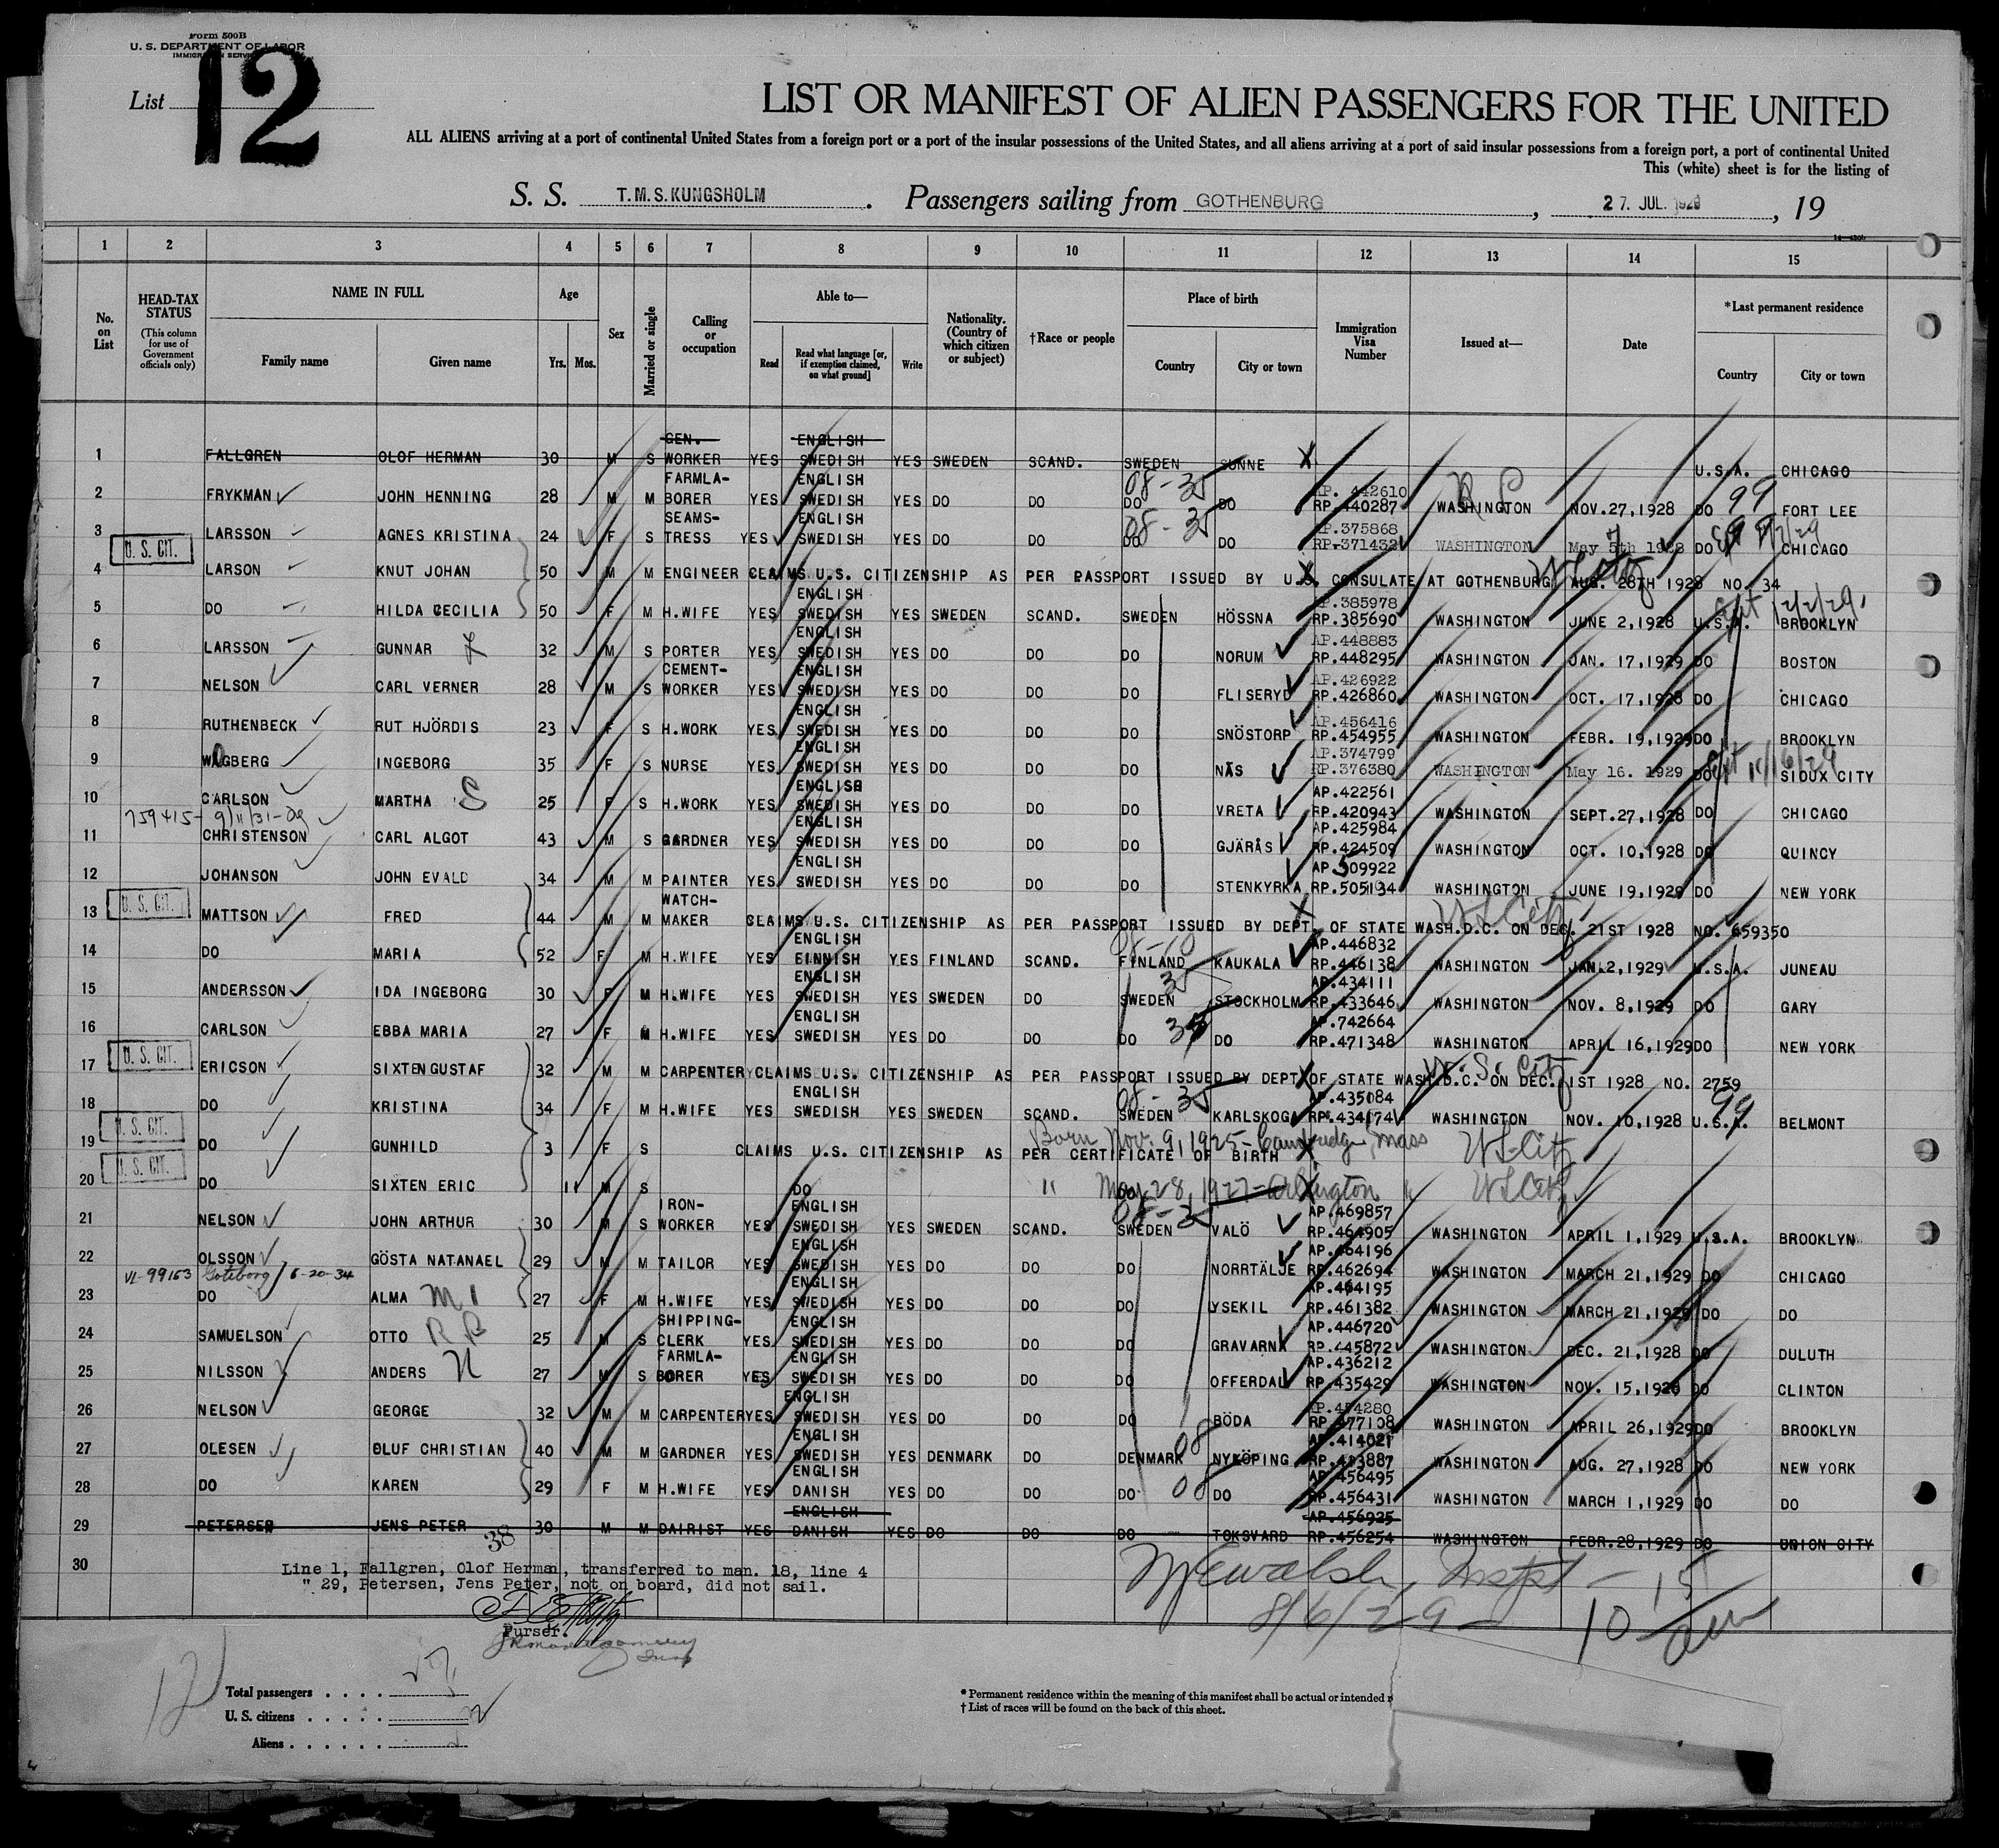 Form 500B
U. S. DEPARTMENT OF LABOR
IMMIGRATION SERVICE
List 12
LIST OR MANIFEST OF ALIEN PASSENGERS FOR THE UNITED
ALL ALIENS arriving at a port of continental United States from a foreign port or a port of the insular possessions of the United States, and all aliens arriving at a port of said insular possessions from a foreign port, a port of continental United
This (white) sheet is for the listing of
S. S. T.M.S.KUNGSHOLM. Passengers sailing from GOTHENBURG, 27. JUL. 1929, 19
1 2 3 4 5 6 7 8 9 10 11 12 13 14 15
No. on List
HEAD-TAX STATUS
(This column for use of Government officials only)
NAME IN FULL
Family name Given name
Age
Yrs. Mos.
Sex
Married or single
Calling or occupation
Able to—
Read Read what language [or, if exemption claimed, on what ground] Write
Nationality. (Country of which citizen or subject)
†Race or people
Place of birth
Country City or town
Immigration Visa Number
Issued at—
Date
*Last permanent residence
Country City or town
GEN. ENGLISH
1 FALLGREN OLOF HERMAN 30 M S WORKER YES SWEDISH YES SWEDEN SCAND. SWEDEN SUNNE X U.S.A. CHICAGO
FARMLA- ENGLISH 08-35 AP. 442610 R P 99
2 FRYKMAN JOHN HENNING 28 M M BORER YES SWEDISH YES DO DO DO DO RP.440287 WASHINGTON NOV.27,1928 DO FORT LEE
SEAMS- ENGLISH 08-35 AP.375868
3 LARSSON AGNES KRISTINA 24 F S TRESS YES SWEDISH YES DO DO DO DO RP.371432 WASHINGTON May 5th 1928 DO CHICAGO
U. S. CIT.
4 LARSON KNUT JOHAN 50 M M ENGINEER CLAIMS U.S. CITIZENSHIP AS PER PASSPORT ISSUED BY U.S. CONSULATE AT GOTHENBURG AUG. 28TH 1928 NO. 34
ENGLISH AP.385978
5 DO HILDA CECILIA 50 F M H.WIFE YES SWEDISH YES SWEDEN SCAND. SWEDEN HÖSSNA RP.385690 WASHINGTON JUNE 2,1928 U.S.A. BROOKLYN
ENGLISH AP.448883
6 LARSSON GUNNAR 32 M S PORTER YES SWEDISH YES DO DO DO NORUM RP.448295 WASHINGTON JAN. 17,1929 DO BOSTON
CEMENT- ENGLISH AP.426922
7 NELSON CARL VERNER 28 M S WORKER YES SWEDISH YES DO DO DO FLISERYD RP.426860 WASHINGTON OCT. 17,1928 DO CHICAGO
ENGLISH AP.456416
8 RUTHENBECK RUT HJÖRDIS 23 F S H.WORK YES SWEDISH YES DO DO DO SNÖSTORP RP.454955 WASHINGTON FEBR. 19,1929 DO BROOKLYN
ENGLISH AP.374799
9 WAGBERG INGEBORG 35 F S NURSE YES SWEDISH YES DO DO DO NÄS RP.376380 WASHINGTON May 16. 1929 DO SIOUX CITY
ENGLISH AP.422561
10 CARLSON MARTHA S 25 F S H.WORK YES SWEDISH YES DO DO DO VRETA RP.420943 WASHINGTON SEPT.27,1928 DO CHICAGO
ENGLISH AP.425984
11 CHRISTENSON CARL ALGOT 43 M S GARDNER YES SWEDISH YES DO DO DO GJÄRÅS RP.424509 WASHINGTON OCT. 10,1928 DO QUINCY
ENGLISH AP.509922
12 JOHANSON JOHN EVALD 34 M M PAINTER YES SWEDISH YES DO DO DO STENKYRKA RP.505134 WASHINGTON JUNE 19,1929 DO NEW YORK
U. S. CIT. WATCH-
13 MATTSON FRED 44 M M MAKER CLAIMS U.S. CITIZENSHIP AS PER PASSPORT ISSUED BY DEPT. OF STATE WASH.D.C. ON DEC. 21ST 1928 NO. 659350
ENGLISH AP.446832
14 DO MARIA 52 F M H.WIFE YES FINNISH YES FINLAND SCAND. FINLAND KAUKALA RP.446138 WASHINGTON JAN.2,1929 U.S.A. JUNEAU
ENGLISH 35 AP.434111
15 ANDERSSON IDA INGEBORG 30 F M H.WIFE YES SWEDISH YES SWEDEN DO SWEDEN STOCKHOLM RP.433646 WASHINGTON NOV. 8,1929 DO GARY
ENGLISH AP.742664
16 CARLSON EBBA MARIA 27 F M H.WIFE YES SWEDISH YES DO DO DO DO RP.471348 WASHINGTON APRIL 16,1929 DO NEW YORK
U. S. CIT. U. S. Citz
17 ERICSON SIXTEN GUSTAF 32 M M CARPENTER CLAIMS U.S. CITIZENSHIP AS PER PASSPORT ISSUED BY DEPT. OF STATE WASH.D.C. ON DEC. 1ST 1928 NO. 2759
ENGLISH 08-35 AP.435084 99
18 DO KRISTINA 34 F M H.WIFE YES SWEDISH YES SWEDEN SCAND. SWEDEN KARLSKOGA RP.434174 WASHINGTON NOV. 10,1928 U.S.A. BELMONT
U. S. CIT. Born Nov. 9, 1925 - Cambridge, Mass
19 DO GUNHILD 3 F S CLAIMS U.S. CITIZENSHIP AS PER CERTIFICATE OF BIRTH US Citz
U. S. CIT.
20 DO SIXTEN ERIC 11 M S DO " 28, 1927 - Arlington " US Citz
IRON- ENGLISH 08-35 AP.469857
21 NELSON JOHN ARTHUR 30 M S WORKER YES SWEDISH YES SWEDEN SCAND. SWEDEN VALÖ RP.464905 WASHINGTON APRIL 1,1929 U.S.A. BROOKLYN
ENGLISH AP.464196
22 OLSSON GÖSTA NATANAEL 29 M M TAILOR YES SWEDISH YES DO DO DO NORRTÄLJE RP.462694 WASHINGTON MARCH 21,1929 DO CHICAGO
VL-99153 Goteborg 6-20-34 ENGLISH AP.464195
23 DO ALMA 27 F M H.WIFE YES SWEDISH YES DO DO DO LYSEKIL RP.461382 WASHINGTON MARCH 21,1929 DO DO
SHIPPING- ENGLISH AP.446720
24 SAMUELSON OTTO 25 M S CLERK YES SWEDISH YES DO DO DO GRAVARNA RP.445872 WASHINGTON DEC. 21,1928 DO DULUTH
FARMLA- ENGLISH AP.436212
25 NILSSON ANDERS N 27 M S BORER YES SWEDISH YES DO DO DO OFFERDAL RP.435429 WASHINGTON NOV. 15,1928 DO CLINTON
ENGLISH
26 NELSON GEORGE 32 M M CARPENTER YES SWEDISH YES DO DO DO BÖDA RP.477108 WASHINGTON APRIL 26,1929 DO BROOKLYN
ENGLISH 08 AP.414021
27 OLESEN OLUF CHRISTIAN 40 M M GARDNER YES SWEDISH YES DENMARK DO DENMARK NYKÖPING RP.413887 WASHINGTON AUG. 27,1928 DO NEW YORK
ENGLISH 08 AP.456495
28 DO KAREN 29 F M H.WIFE YES DANISH YES DO DO DO DO RP.456431 WASHINGTON MARCH 1,1929 DO DO
ENGLISH AP.456925
29 PETERSEN JENS PETER 30 M M DAIRIST YES DANISH YES DO DO DO TOKSVARD RP.456254 WASHINGTON FEBR.28,1929 DO UNION CITY
38
30
Line 1, Fallgren, Olof Herman, transferred to man. 18, line 4
" 29, Petersen, Jens Peter, not on board, did not sail.
Purser.
8/6/29
Total passengers
U. S. citizens
Aliens
* Permanent residence within the meaning of this manifest shall be actual or intended
† List of races will be found on the back of this sheet.